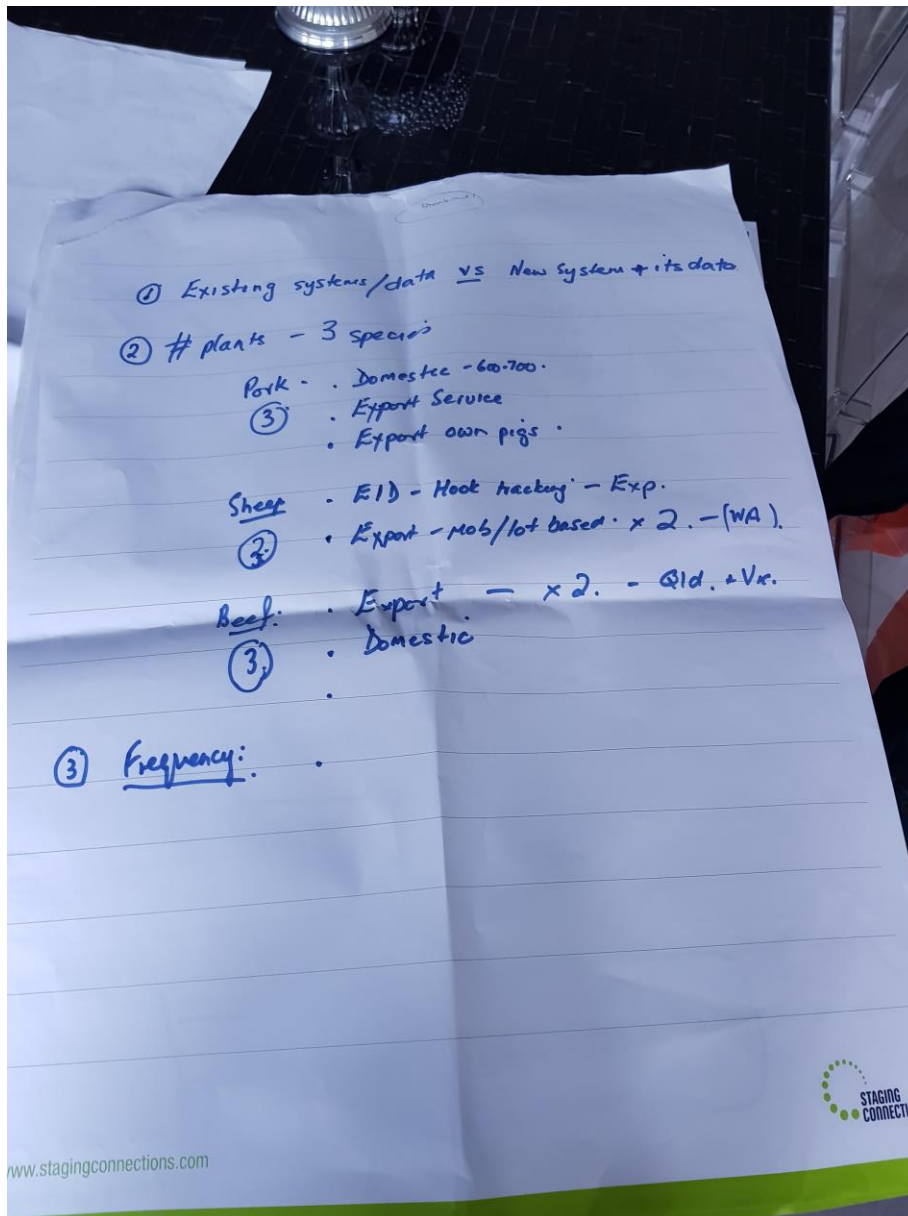 ① Existing systems/data vs New System + its data
② # plants - 3 species
Pork - . Domestic - 600-700.
③ . Export Service
. Export own pigs .
Sheep . EID - Hook tracking - Exp.
. Export - mob/lot based . x 2. - (WA).
Beef: . Export - x 2. - Qld. + Vic.
③ . Domestic
.
③ Frequency: .
STAGING
CONNECTI
www.stagingconnections.com